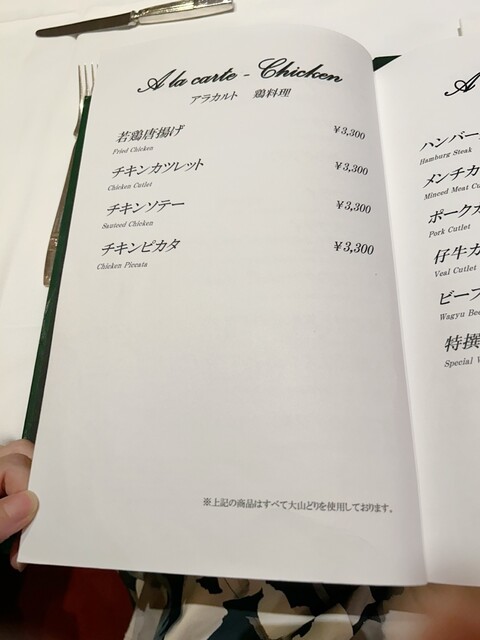 A la carte - Chicken
アラカルト 鶏料理
若鶏唐揚げ ¥3,300
Fried Chicken
チキンカツレット ¥3,300
Chicken Cutlet
チキンソテー ¥3,300
Sauteed Chicken
チキンピカタ ¥3,300
Chicken Piccata
※上記の商品はすべて大山どりを使用しております。
A
ハンバー
Hamburg Steak
メンチカ
Minced Meat Cu
ポークカ
Pork Cutlet
仔牛カ
Veal Cutlet
ビーフ
Wagyu Bee
特撰
Special